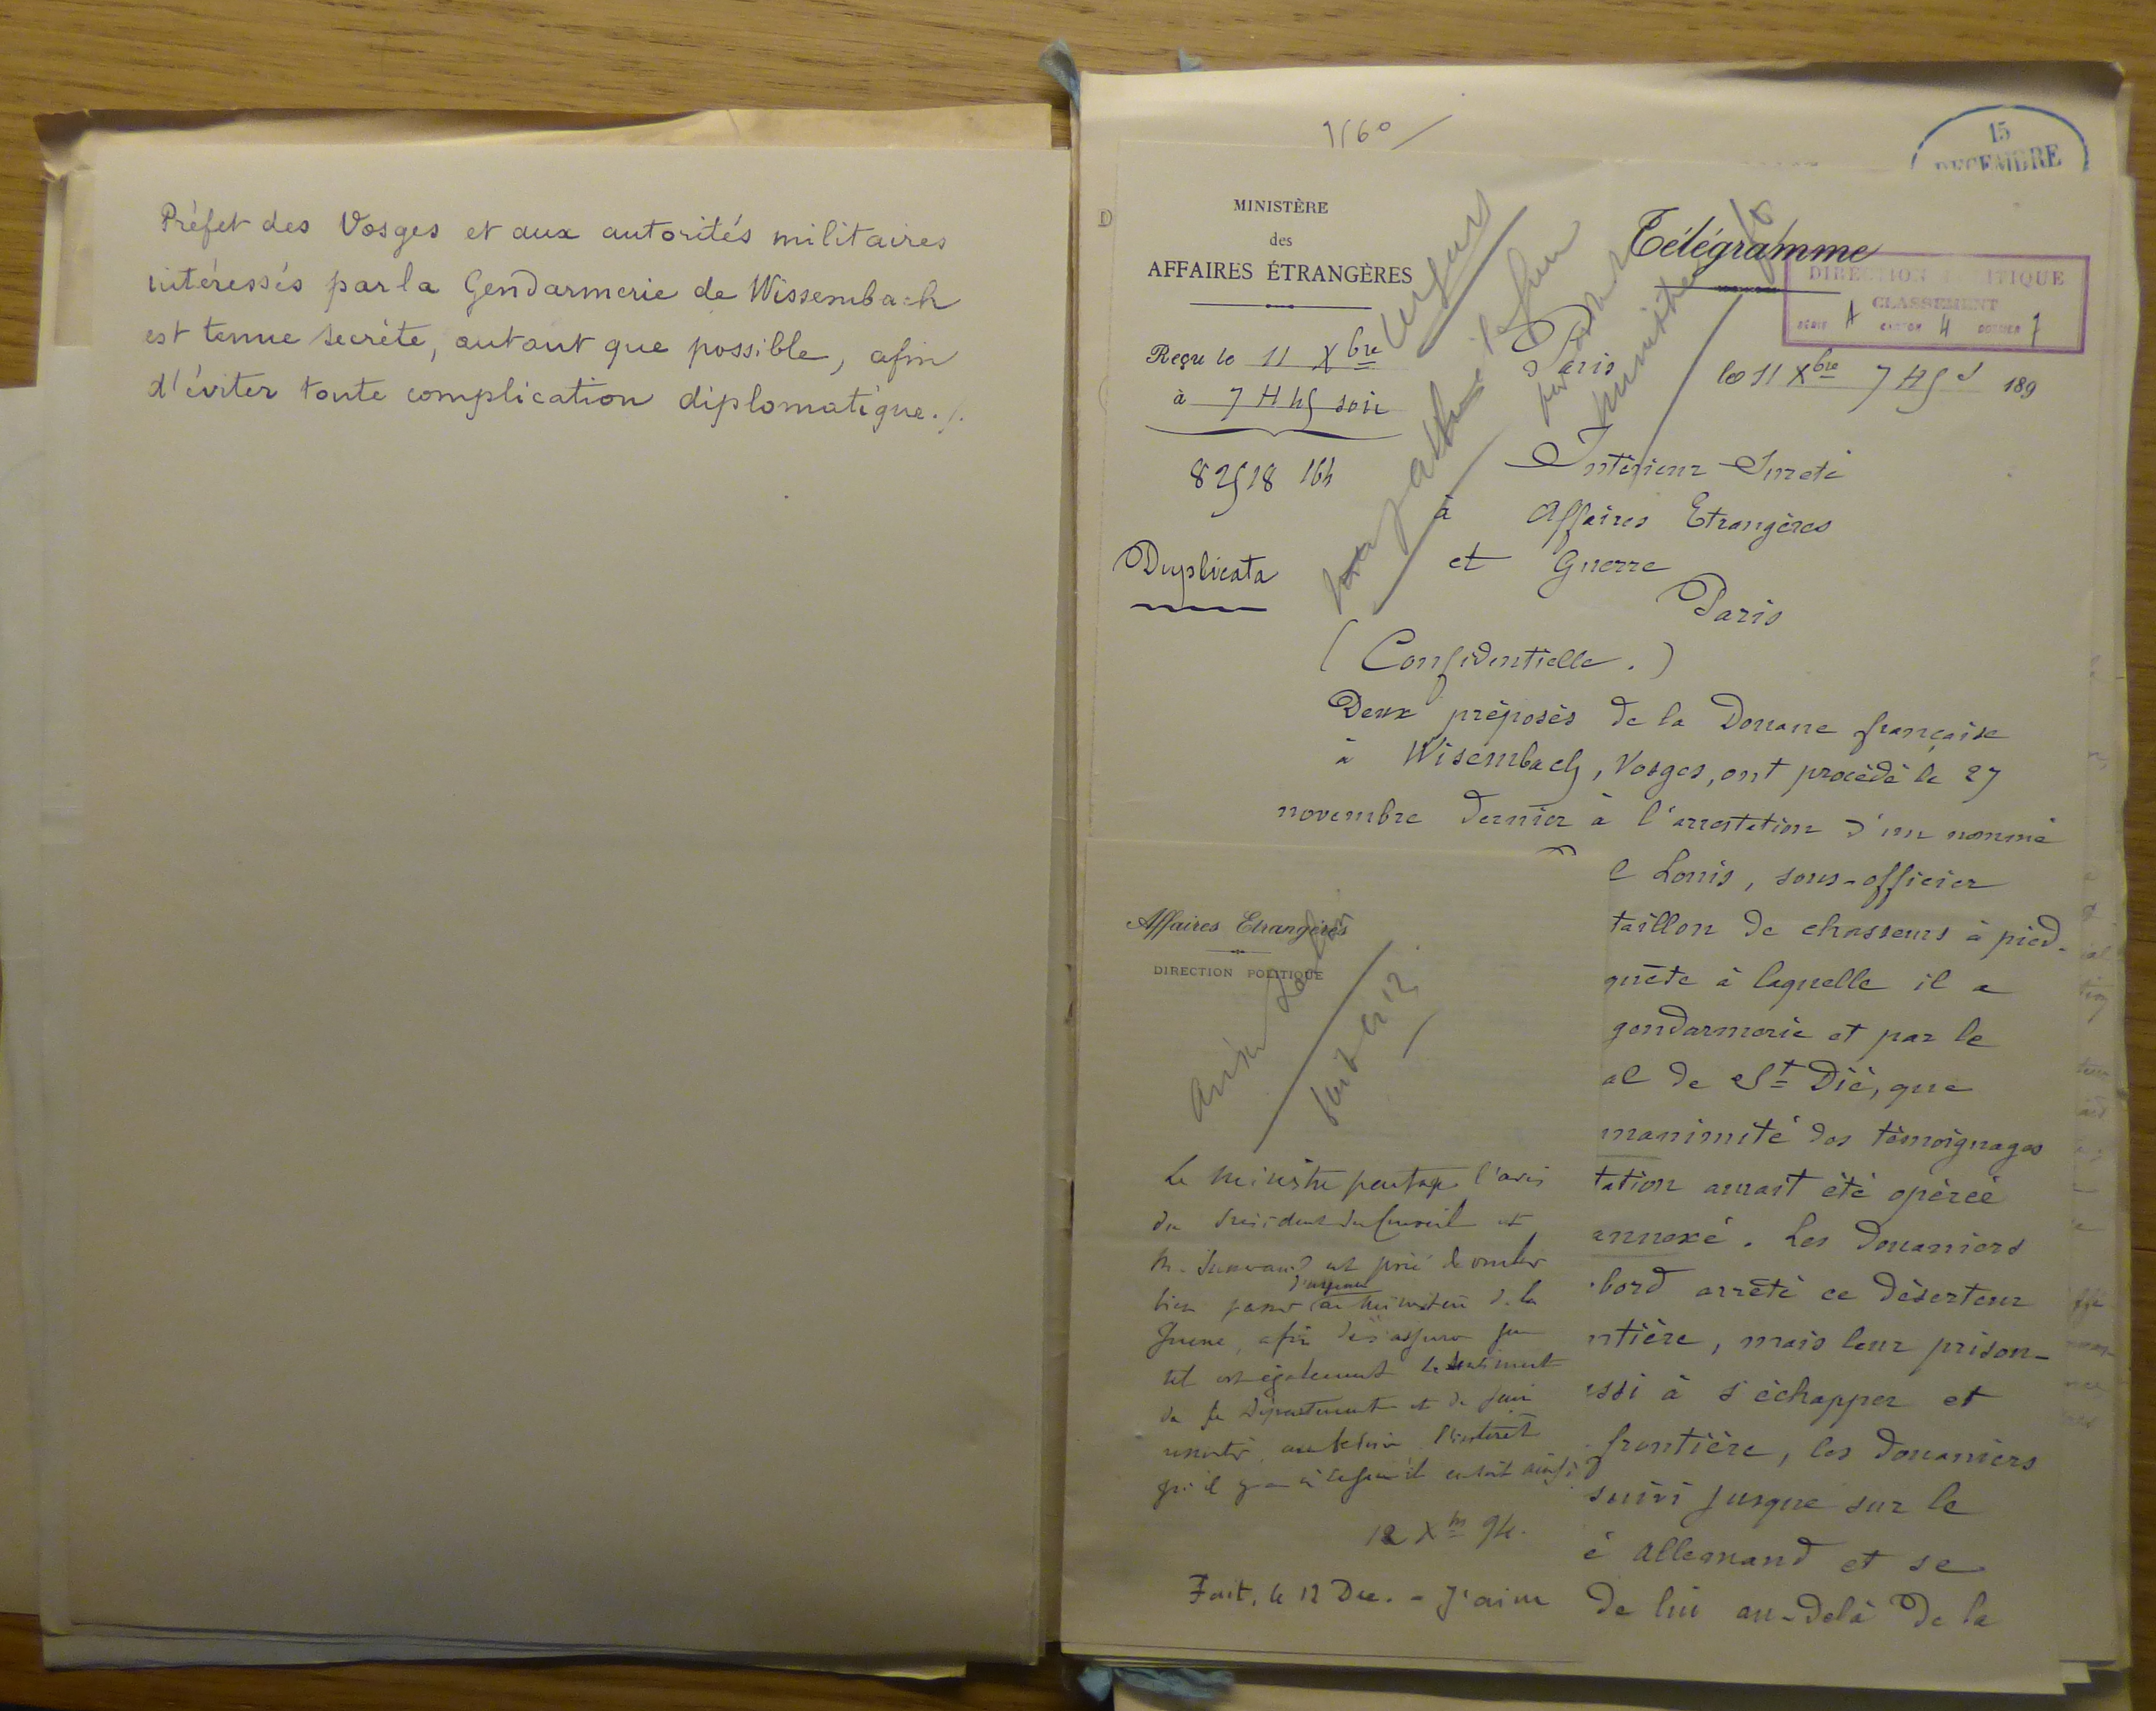 Préfet des Vosges et aux autorités militaires
intéressés par la Gendarmerie de Wissembach
est tenue secrète, autant que possible, afin
d'éviter toute complication diplomatique./.
15
DECEMBRE
MINISTÈRE
des
AFFAIRES ÉTRANGÈRES
Télégramme
DIRECTION POLITIQUE
CLASSEMENT
SÉRIE A CARTON 4 DOSSIER 7
Reçu le 11 Xbre
à 7 H 45 soir
Paris le 11 Xbre 7 H 5 s 189
82518 164
Duplicata
Intérieur Sureté
à Affaires Etrangères
et Guerre
Paris
(Confidentielle.)
Deux préposés de la Douane française
à Wisembach, Vosges, ont procédé le 27
novembre dernier à l'arrestation d'un nommé
e Louis, sous-officier
taillon de chasseurs à pied.
quête à laquelle il a
gendarmerie et par le
al de St Dié, que
nanimité des témoignages
tation aurait été opérée
annexé. Les Douaniers
bord arrêté ce déserteur
ntière, mais leur prison-
ssi à s'échapper et
frontière, les douaniers
suivi jusque sur le
é allemand et se
de lui au-delà de la
Affaires Etrangères
DIRECTION POLITIQUE
Le Ministre partage l'avis
du Président du Conseil et
M. est prié de vouloir
bien passer d'urgence au Ministère de la
Guerre, afin de s'assurer que
tel est également le sentiment
de ce Département et de faire
ressortir, au besoin l'intérêt
qu'il y a à ce qu'il en soit ainsi
12 Xbre 94.
Fait, le 12 Dec. - J'ai vu